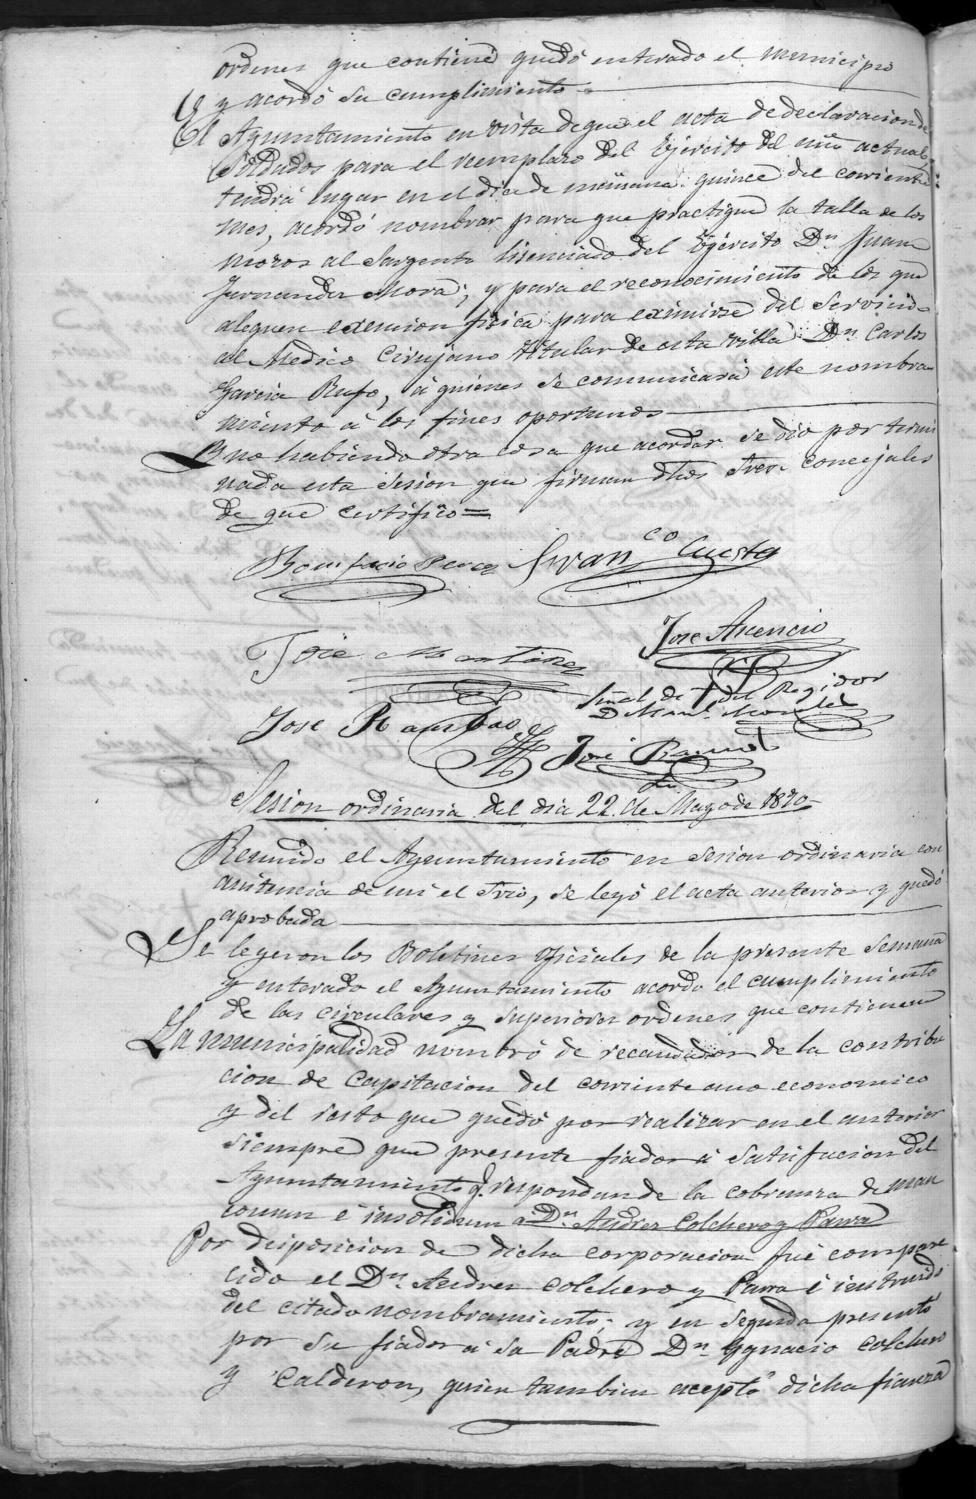 ordenes que contiene quedó enterado el municipio
y acordó su cumplimiento
El Ayuntamiento en vista de que el acta de declaracion de
Soldados para el reemplazo del Ejército del año actual,
tendrá lugar en el dia de mañana quince del corriente
mes, acordó nombrar para que practique la talla de los
mozos al Sargento lisenciado del Ejército Dn. Juan
Fernandez Mora; y para el reconocimiento de los que
aleguen exencion física para eximirse del Servicio
al Medico Cirujano titular de esta villa Dn. Carlos
Garcia Rufo, á quienes se comunicará este nombra
miento á los fines oportunos
Y no habiendo otra cosa que acordar se dió por termi
nada esta Sesion que firman dhos Sres. concejales
de que certifico=
Bonifacio Perez Franco Cuesta
Jose Ascencio
José Martinez
Señal de † del Regidor
D Manl. Morales
Jose Ramos
José Ramos
Sesion ordinaria del dia 22 de Mayo de 1870
Reunido el Ayuntamiento en sesion ordinaria con
asistencia de mi el Srio, se leyó el acta anterior y quedó
aprobada
Se leyeron los Boletines oficiales de la presente Semana
y enterado el Ayuntamiento acordó el cumplimiento
de las circulares y superiores ordenes que contienen
La municipalidad nombró de recaudador de la contribu
cion de Capitacion del corriente año economico
y del resto que quedó por realizar en el anterior
siempre que presente fiador á satisfacion del
Ayuntamiento q. respondan de la cobranza de man
comun é insolidum a Dn. Andres Colchero y Parra
Por disposicion de dicha corporacion fué compare
cido el Dn. Andres Colchero y Parra é instruido
del citado nombramiento, y en seguida presentó
por su fiador á su Padre Dn. Ygnacio Colchero
y Calderon, quien tambien aceptó dicha fianza